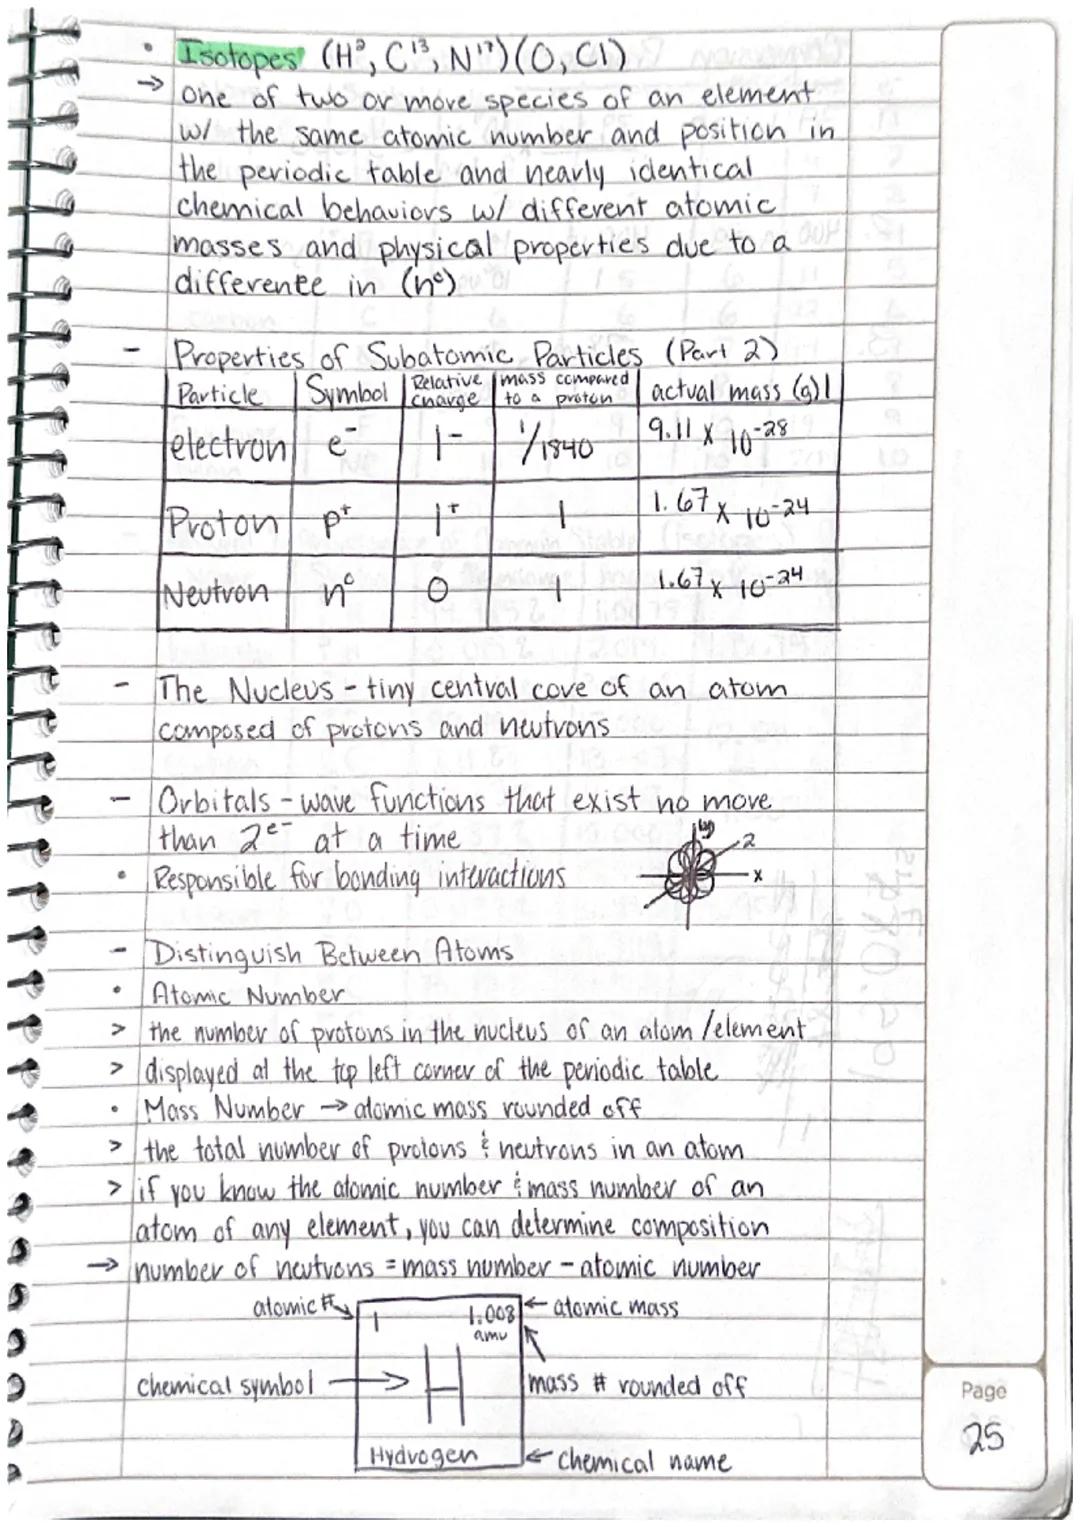 • Isotopes (H², C¹³, N¹⁷)(O, Cl)
→ one of two or more species of an element
w/ the same atomic number and position in
the periodic table and nearly identical
chemical behaviors w/ different atomic
masses and physical properties due to a
difference in (n°)
- Properties of Subatomic Particles (Part 2)
Particle Symbol Relative charge mass compared to a proton actual mass (g)
electron e⁻ 1- 1/1840 9.11 x 10⁻²⁸
Proton p⁺ 1+ 1 1.67 x 10⁻²⁴
Neutron n° 0 1 1.67 x 10⁻²⁴
- The Nucleus - tiny central core of an atom
composed of protons and neutrons
- Orbitals - wave functions that exist no more
than 2e⁻ at a time
y
z
x
• Responsible for bonding interactions
- Distinguish Between Atoms
• Atomic Number
> the number of protons in the nucleus of an atom/element
> displayed at the top left corner of the periodic table
• Mass Number → atomic mass rounded off
> the total number of protons & neutrons in an atom
> if you know the atomic number & mass number of an
atom of any element, you can determine composition
→ number of neutrons = mass number - atomic number
atomic # 1 1.008 ← atomic mass
amu
chemical symbol → H mass # rounded off
Hydrogen ← chemical name
Page
25